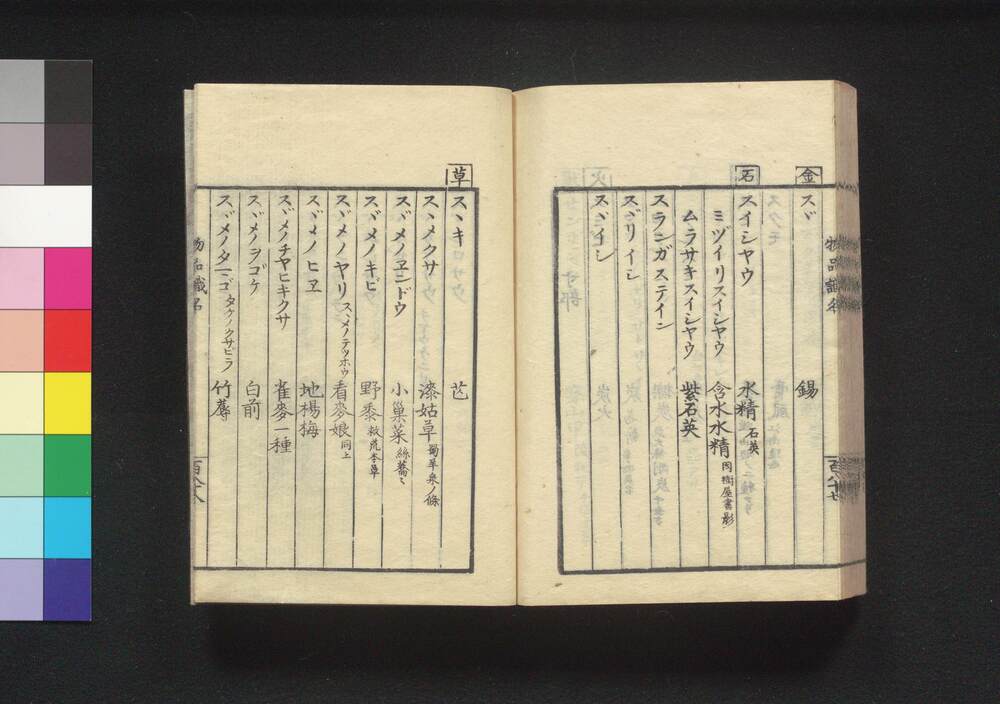 金
スヾ 錫
石
スイシヤウ 水精 石英
ミヅイリスイシヤウ 含水水精
ムラサキスイシヤウ 紫石英
スラニガステイシ
スヾリイシ
スヾイシ
物品識名
百八十七
草
スヽキ 芒
スヽメクサ 漆姑草 蜀羊泉ノ條
スヾメノヱンドウ 小巣菜
スヾメノキビ 野黍 救荒本草
スヾメノヤリ スヽメノテツホウ 看麥娘 同上
スヾメノヒヱ 地楊梅
スヾメノチヤヒキクサ 雀麥一種
スヾメノヲゴケ 白前
スヾメノタマゴ タケノクサビラ 竹蓐
物品識名